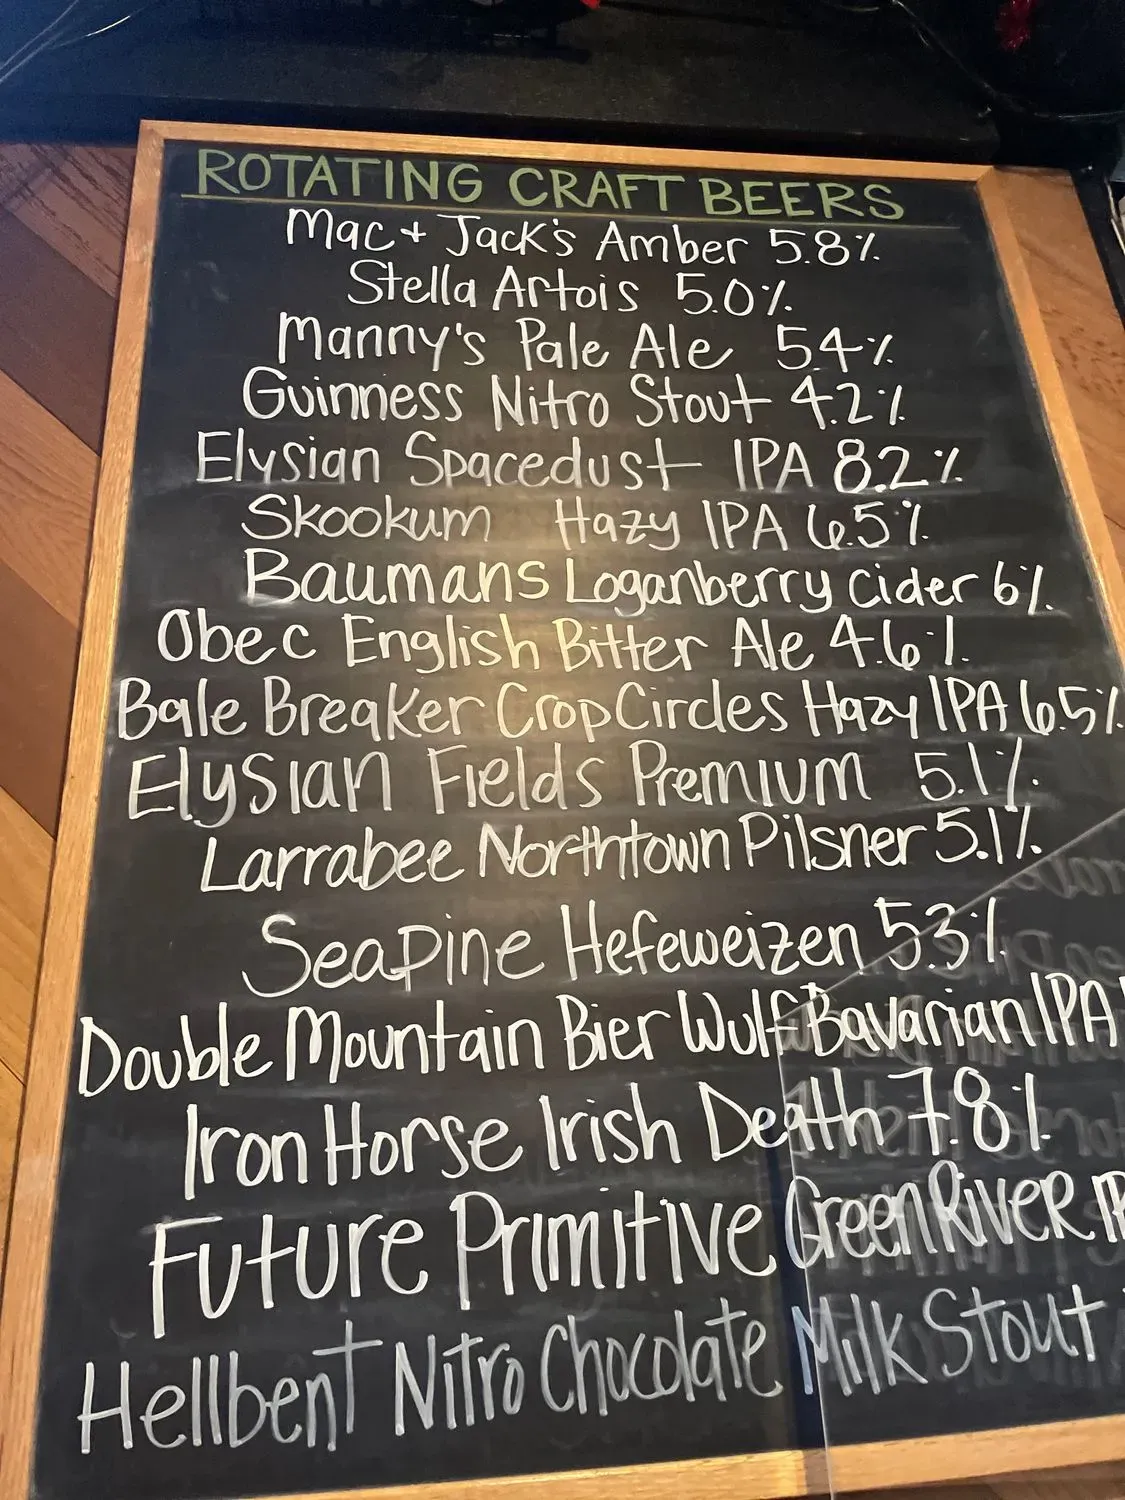 ROTATING CRAFT BEERS
Mac + Jack's Amber 5.8%
Stella Artois 5.0%
Manny's Pale Ale 5.4%
Guinness Nitro Stout 4.2%
Elysian Spacedust IPA 8.2%
Skookum Hazy IPA 6.5%
Baumans Loganberry Cider 6%
Obec English Bitter Ale 4.6%
Bale Breaker Crop Circles Hazy IPA 6.5%
Elysian Fields Premium 5.1%
Larrabee Northtown Pilsner 5.1%
Seapine Hefeweizen 5.3%
Double Mountain Bier Wulf Bavarian IPA
Iron Horse Irish Death 7.8%
Future Primitive Green River
Hellbent Nitro Chocolate Milk Stout